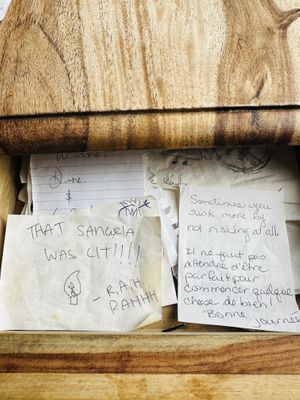 Wine
Dine
&
THAT SANGRIA
WAS LIT!!!!
- RAH
RAHHH
Sometimes you
risk more by
not risking at all.
Il ne faut pas
attendre d'être
parfait pour
commencer quelque
chose de bien!
Bonne journée